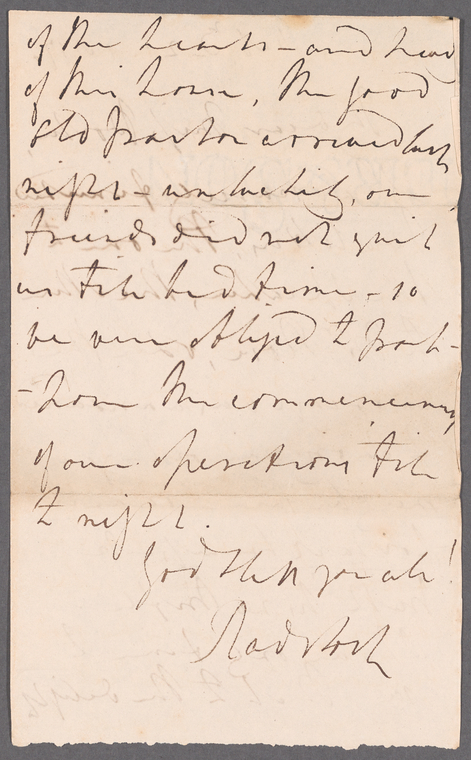 of the hearts - and head
of this house, the good
old Proctor arrived last
night - unluckily, our
friends did not quit
us till bed time - so
we were obliged to post-
-pone the commencement
of our operations till
to night.
God bless you all!
Radstock